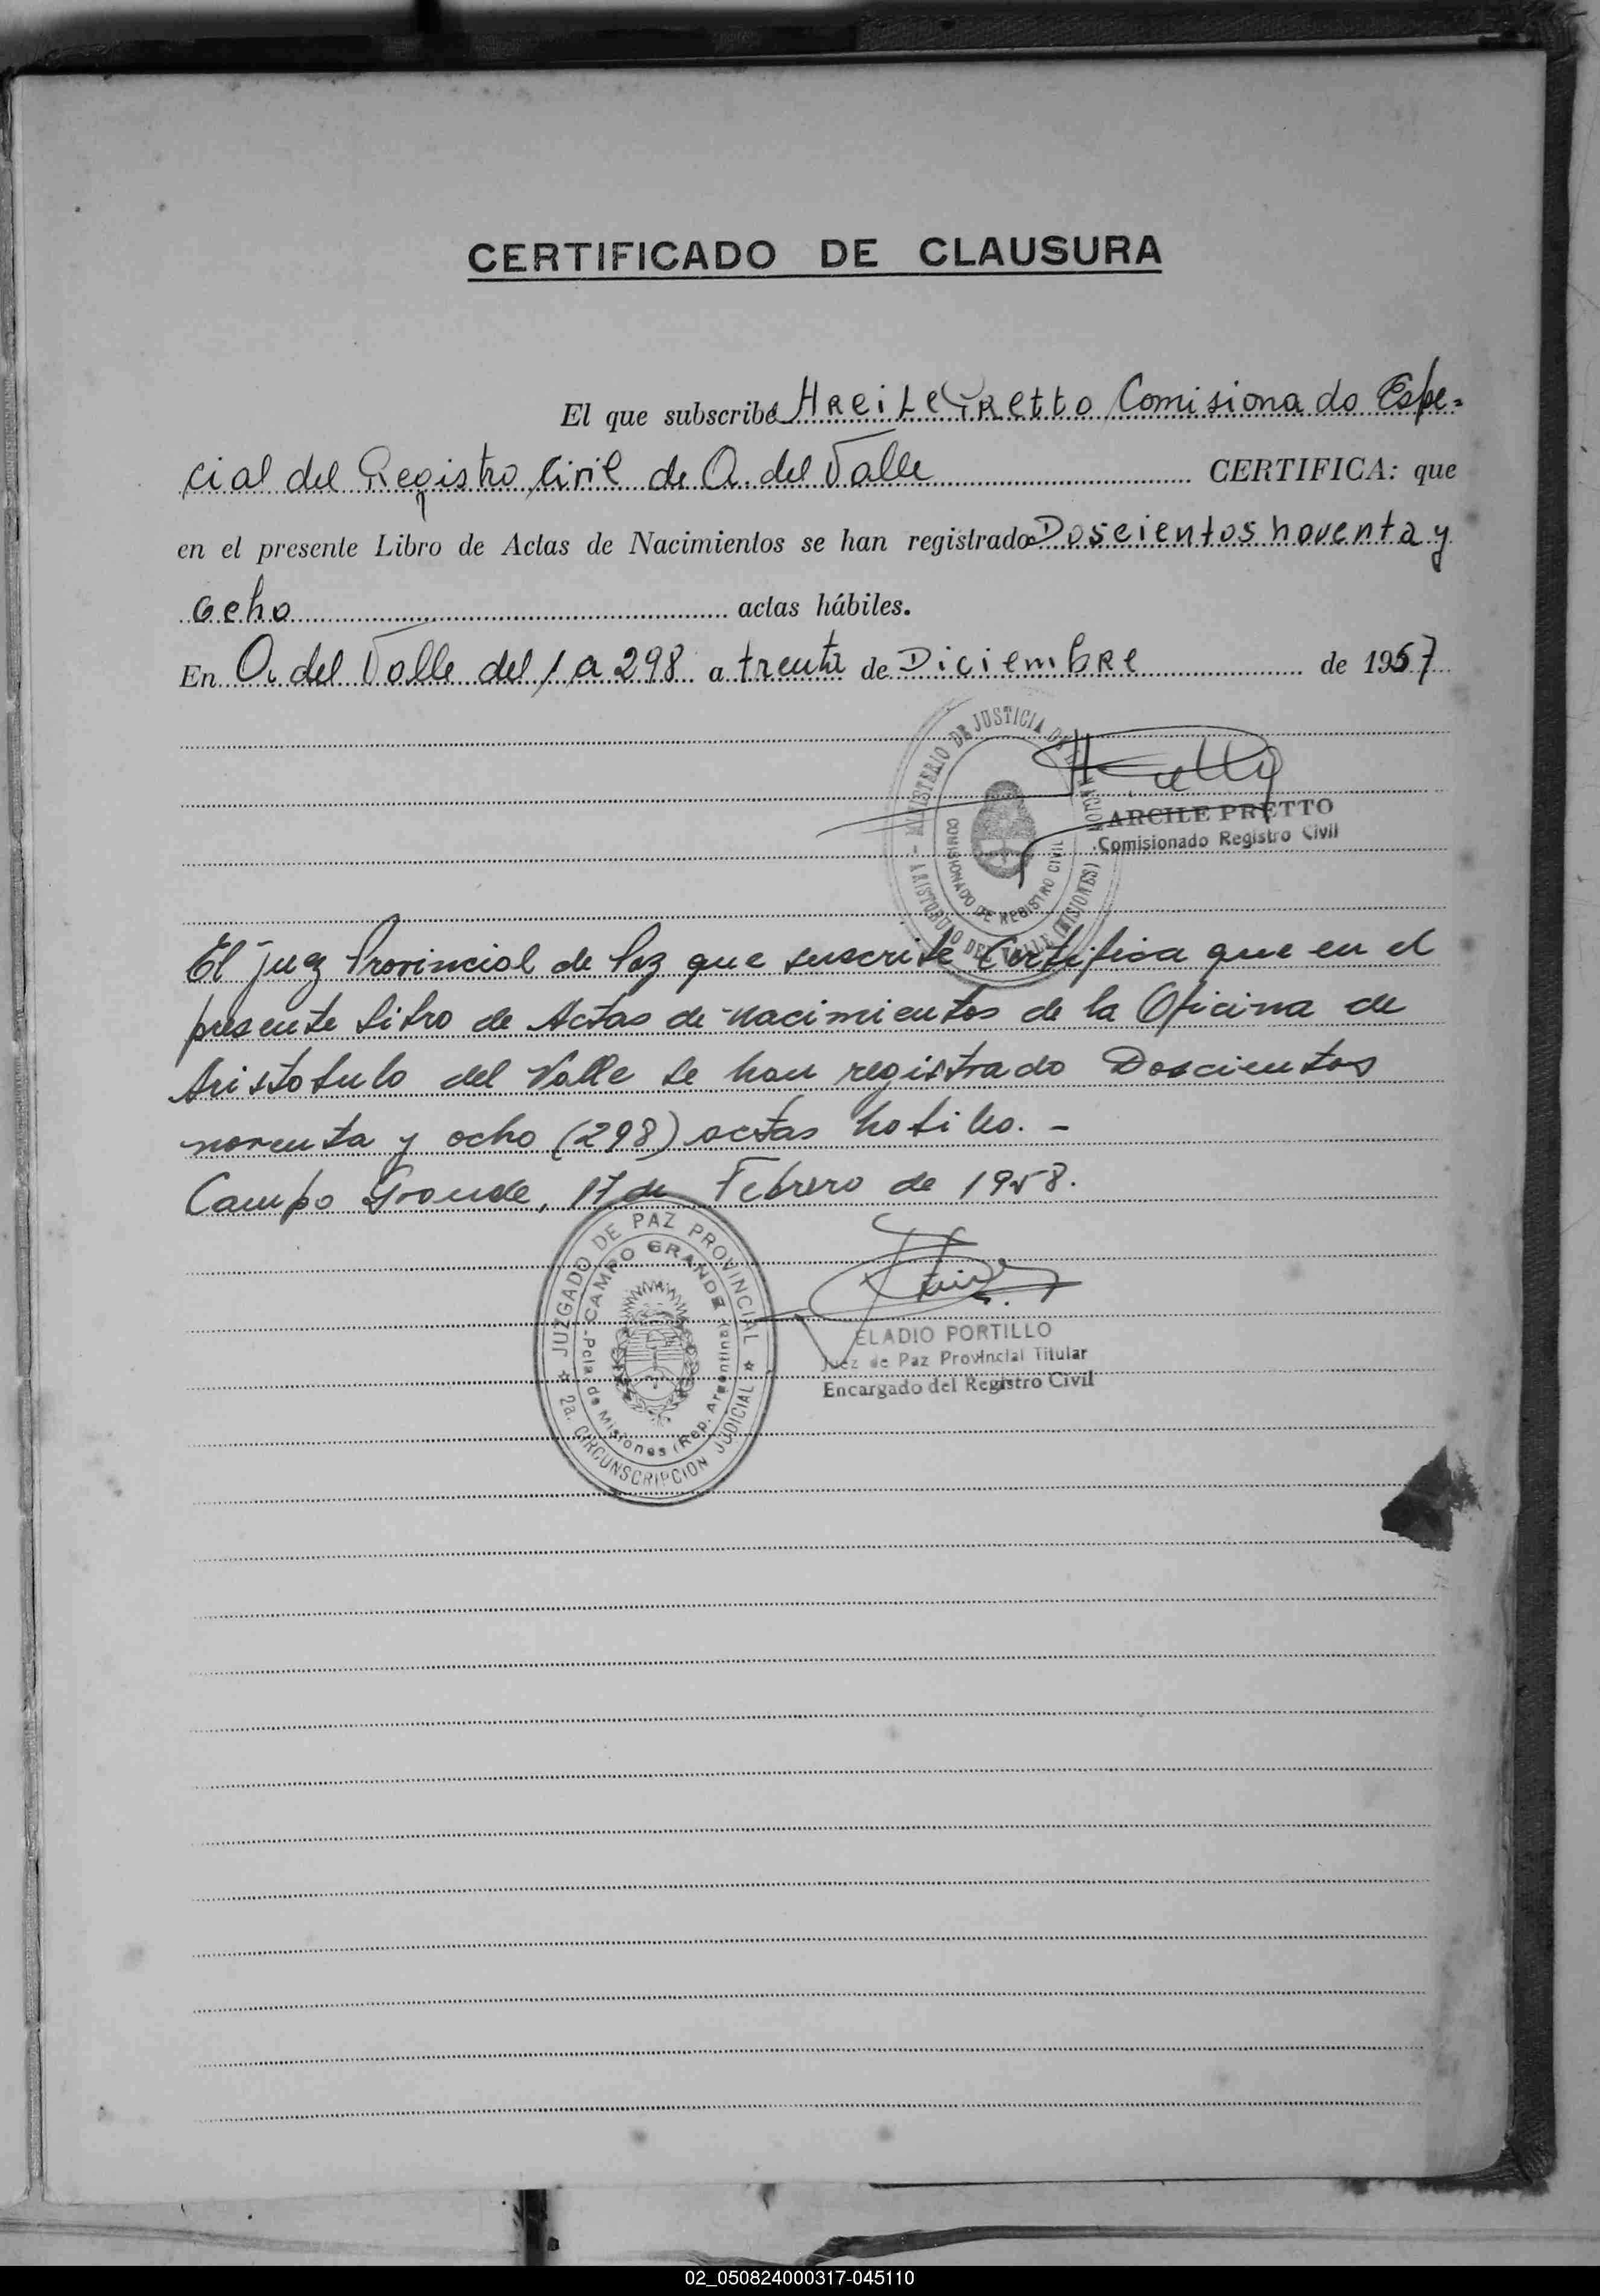 CERTIFICADO DE CLAUSURA
El que subscribe Arcile Pretto Comisionado Espe=
cial del Registro Civil de A. del Valle CERTIFICA: que
en el presente Libro de Actas de Nacimientos se han registrado Doscientos noventa y
ocho actas hábiles.
En A. del Valle del 1 a 298 a treinta de Diciembre de 1957
MINISTERIO DE JUSTICIA DE LA NACION
COMISIONADO DE REGISTRO CIVIL
ARISTOBULO DEL VALLE (MISIONES)
ARCILE PRETTO
Comisionado Registro Civil
El Juez Provincial de Paz que suscribe Certifica que en el
presente Libro de Actas de Nacimientos de la Oficina de
Aristobulo del Valle se han registrado Doscientos
noventa y ocho (298) actas habiles. -
Campo Grande, 17 de Febrero de 1958.
JUZGADO DE PAZ PROVINCIAL
CAMPO GRANDE
-Pcia de Misiones (Rep. Argentina)-
2a. CIRCUNSCRIPCION JUDICIAL
ELADIO PORTILLO
Juez de Paz Provincial Titular
Encargado del Registro Civil
02_050824000317-045110